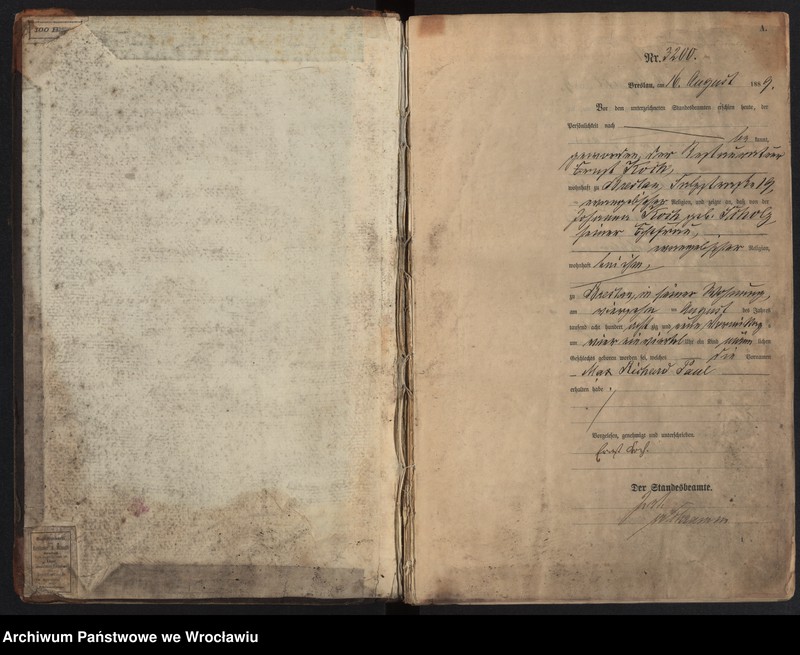 A.
Nr. 3200.
Breslau, am 16. August 1889.
Vor dem unterzeichneten Standesbeamten erschien heute, der
Persönlichkeit nach
be kannt,
der Restaurateur
Ernst
wohnhaft zu Breslau, 19,
evangelischer Religion, und zeigte an, daß von der
Johanna geb. Scholz
seiner Ehefrau,
evangelischer Religion,
wohnhaft bei ihm,
zu Breslau, in seiner Wohnung,
am vierzehn ten August des Jahres
tausend acht hundert acht zig und neun Vormittags
um vier einviertel Uhr ein Kind männ lichen
Geschlechts geboren worden sei, welches die Vornamen
Max Richard Paul
erhalten habe.
Vorgelesen, genehmigt und unterschrieben
Ernst
Der Standesbeamte.
Archiwum Państwowe we Wrocławiu